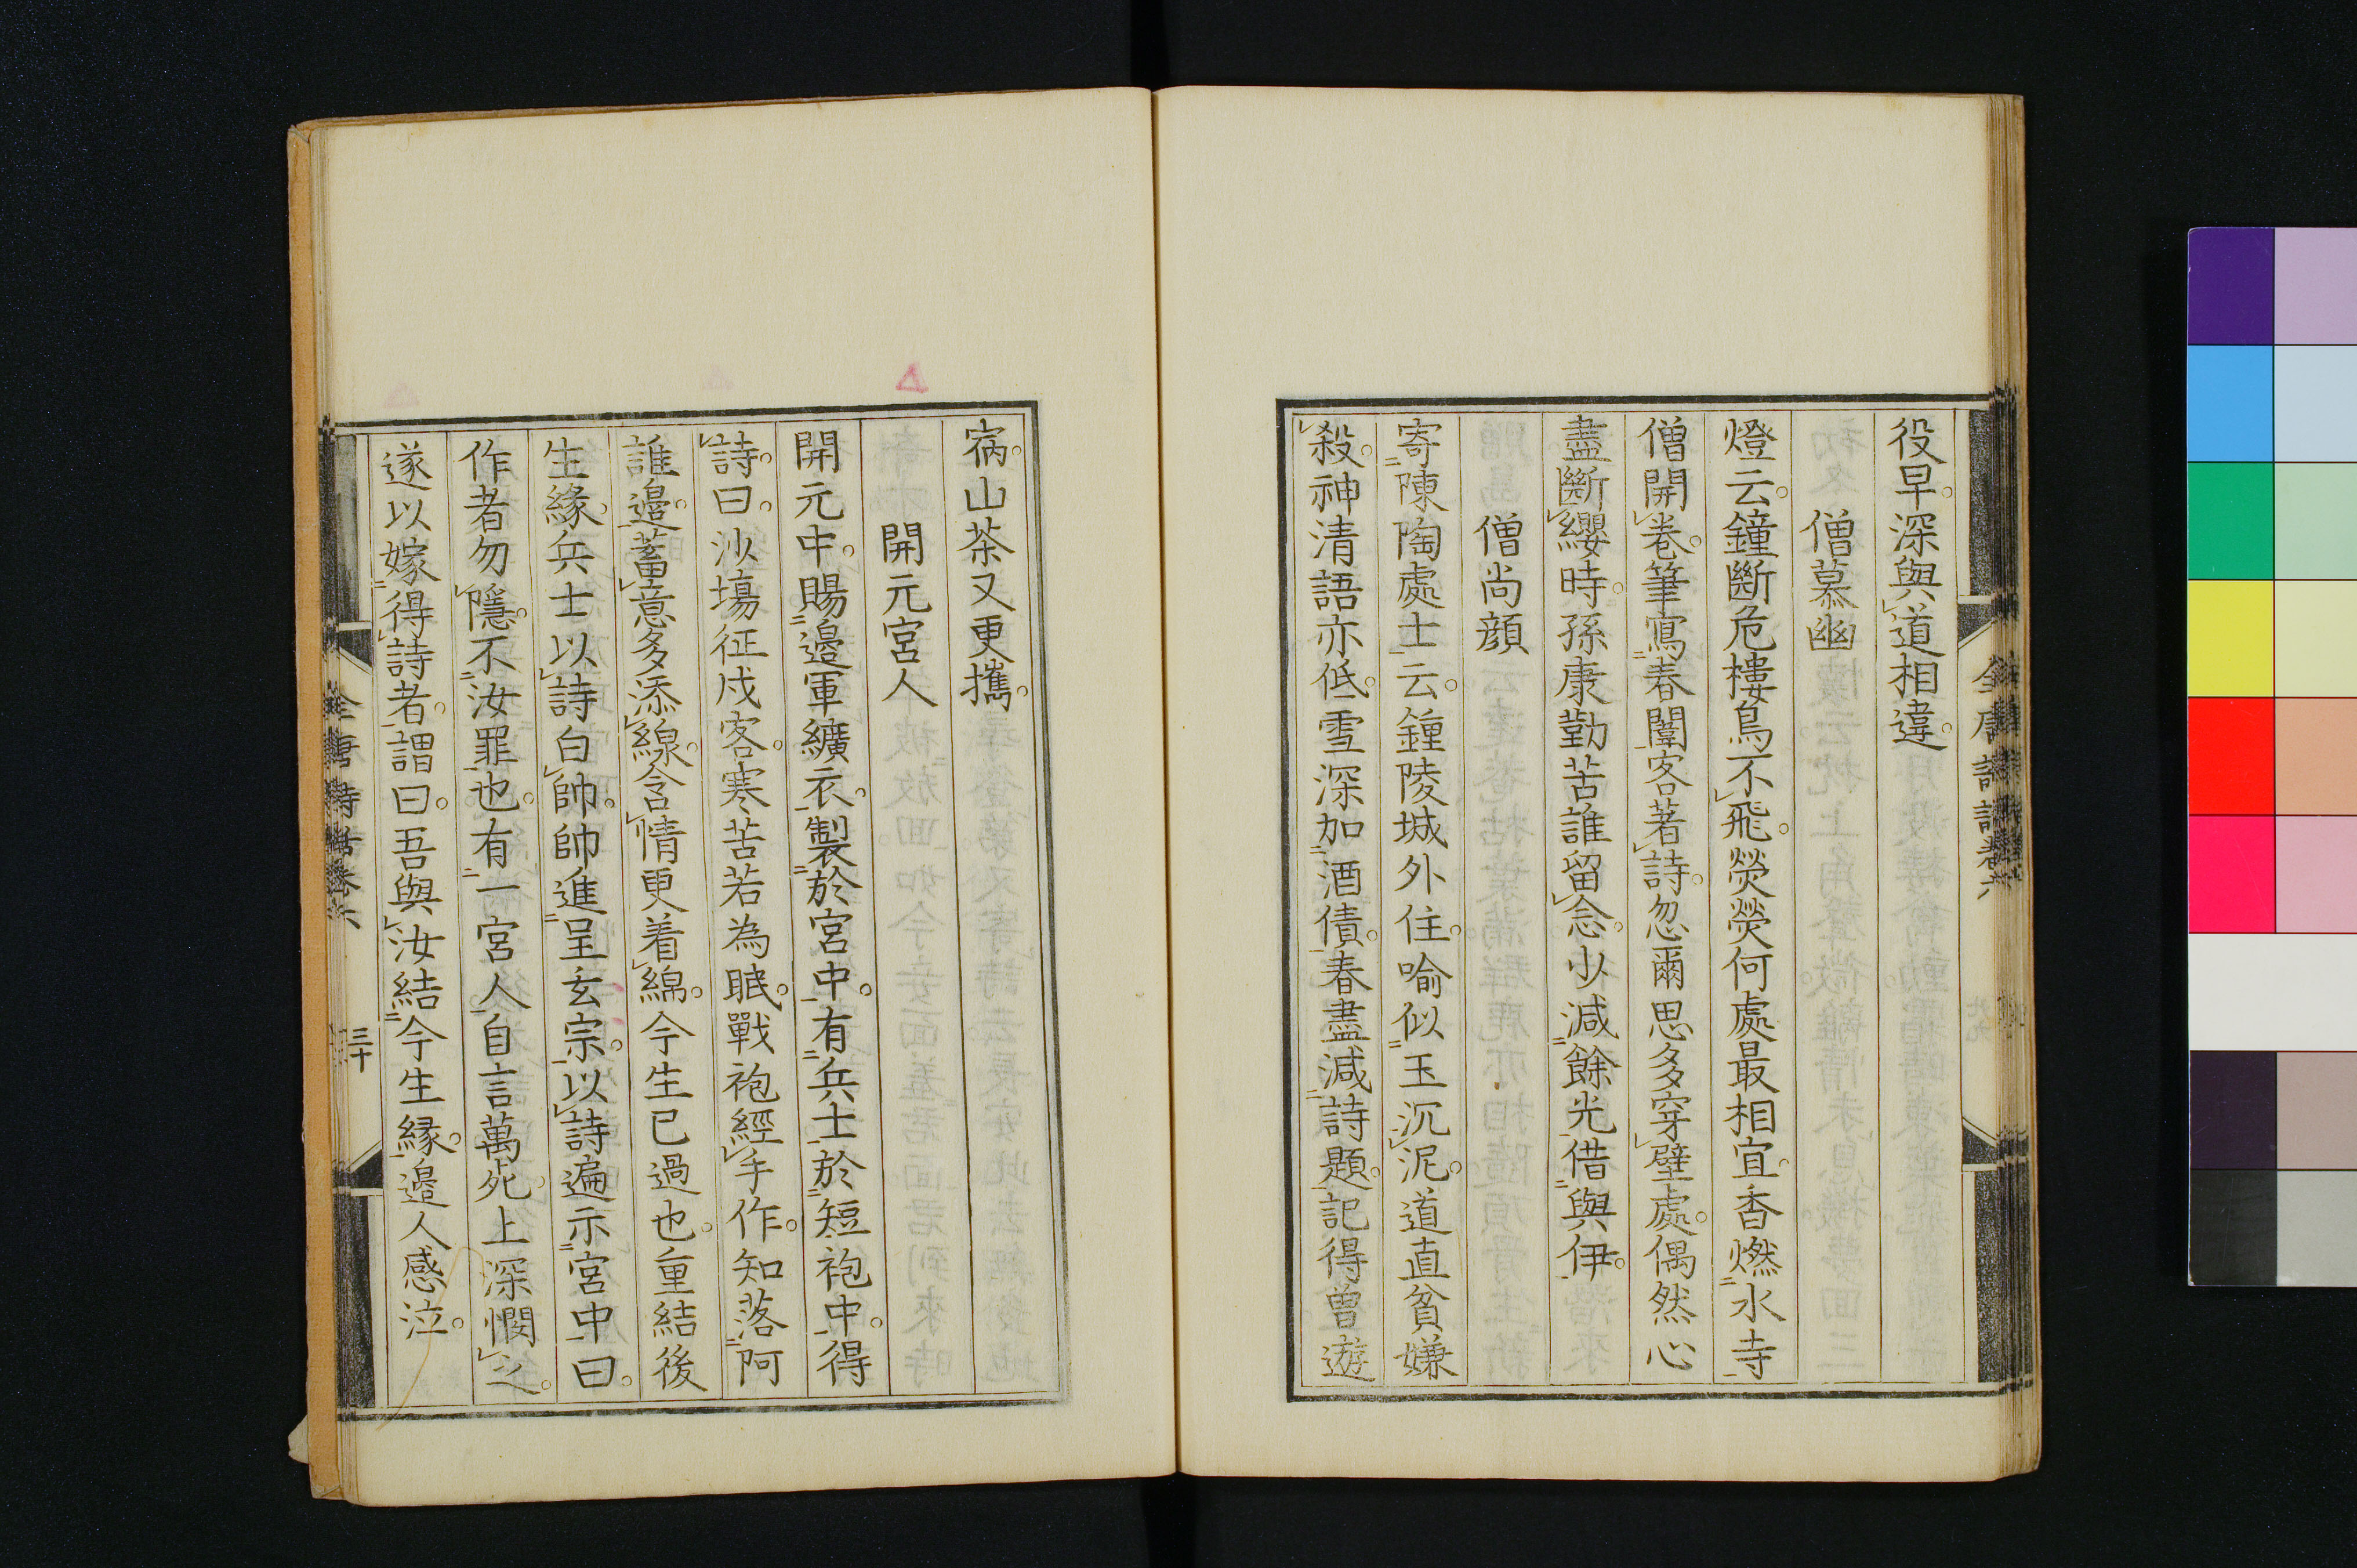 役早深與道相違
僧慕幽
燈云鐘斷危樓鳥不飛熒熒何處最相宜香燃水寺
僧開卷筆寫春闈客著詩忽爾思多穿壁處偶然心
盡斷纓時孫康勤苦誰留念少減餘光借與伊
僧尚顔
寄陳陶處士云鍾陵城外住喻似玉沉泥道直貧嫌
殺神清語亦低雪深加酒債春盡減詩題記得曽遊
病山茶又更攜
開元宮人
開元中賜邉軍纊衣製於宮中有兵士於短袍中得
詩曰沙塲征戍客寒苦若為眠戰袍經手作知落阿
誰邉蓄意多添線含情更着綿今生已過也重結後
生緣兵士以詩白帥帥進呈玄宗以詩遍示宮中曰
作者勿隱不汝罪也有一宮人自言萬死上深憫之
遂以嫁得詩者謂曰吾與汝結今生縁邉人感泣
全唐詩話卷六
三十